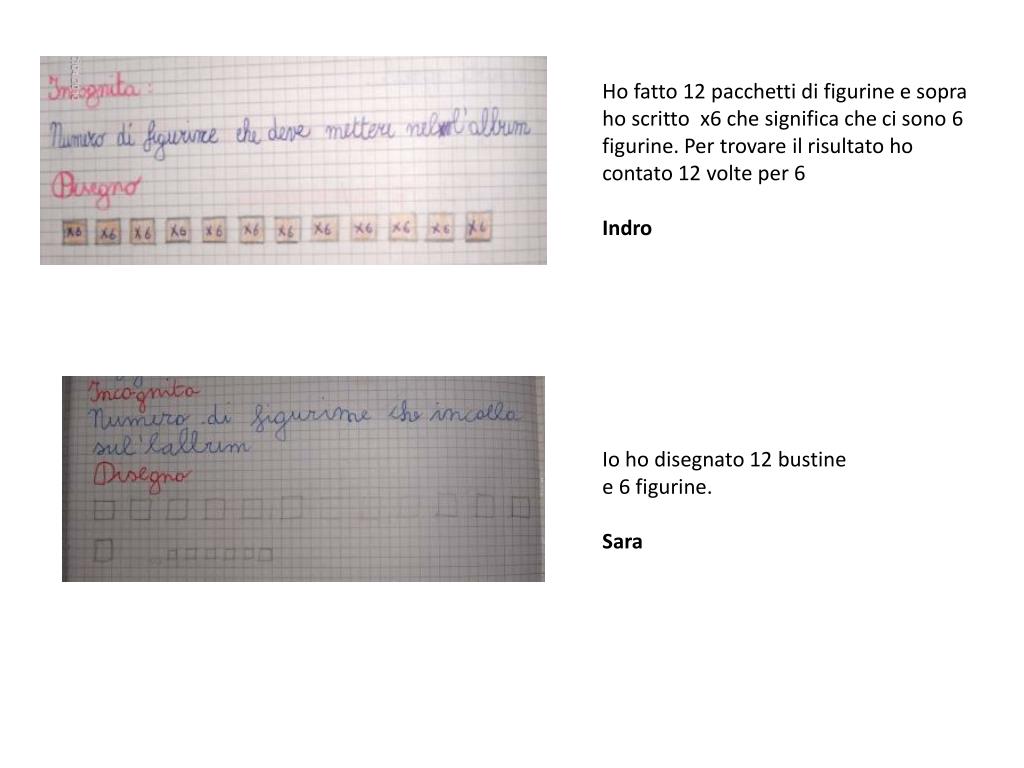 Incognita:
Numero di figurine che deve mettere nell'album
Disegno
x6 x6 x6 x6 x6 x6 x6 x6 x6 x6 x6 x6
Ho fatto 12 pacchetti di figurine e sopra
ho scritto x6 che significa che ci sono 6
figurine. Per trovare il risultato ho
contato 12 volte per 6
Indro
Incognita
Numero di figurine che incolla
sul'lallrum
Disegno
Io ho disegnato 12 bustine
e 6 figurine.
Sara